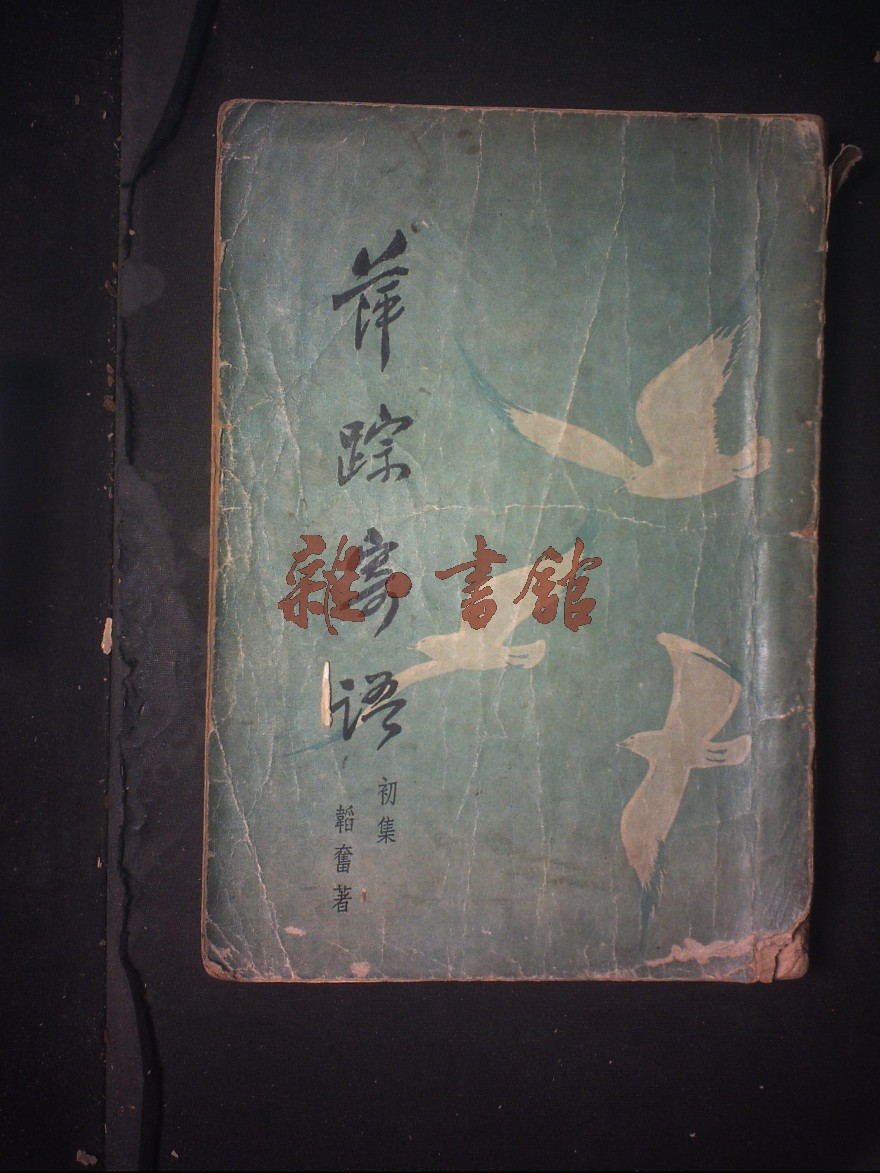 萍踪寄语
初集
韜奮著
雜·書館